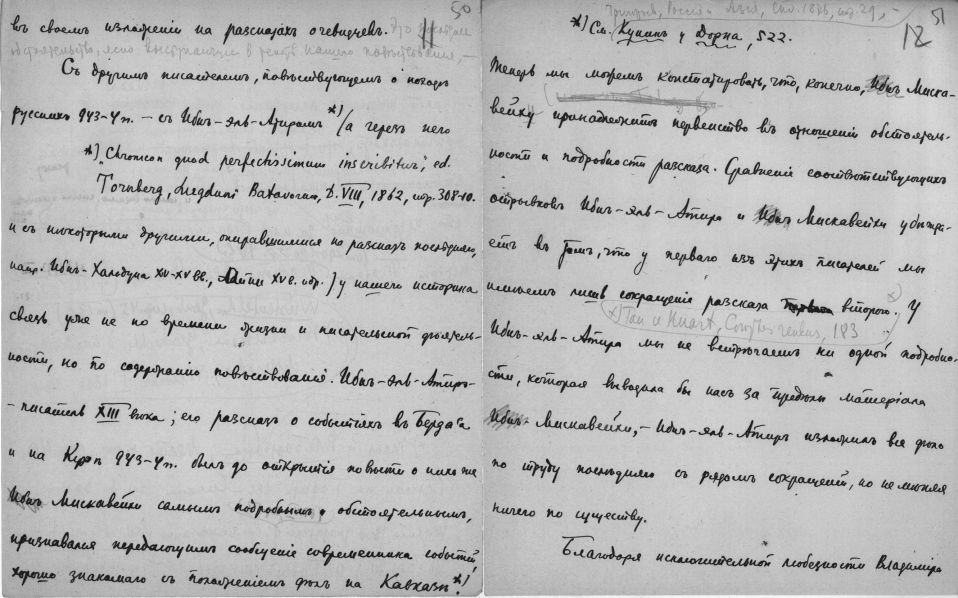 50
11
въ своемъ изложеніи на разсказахъ очевидцевъ. Это
обстоятельство, ясно
Съ другимъ писателемъ, повѣствующемъ о походѣ
русскихъ 943-4 гг. – съ Ибнъ-эль-Атиромъ *) /а черезъ него
*) Chronicon quod perfectissimum inscribitur, ed.
Tornberg, Lugduni Batavorum, t. VIII, 1862, стр. 308-10.
и съ нѣкоторыми другими, опиравшимися на разсказъ послѣдняго,
напр. Ибнъ-Халдуна XIV-XV вв., Айни XV в. /у нашего историка
связь уже не по времени жизни и писательской дѣятель-
ности, но по содержанію повѣствованія. Ибнъ-эль-Атиръ-
- писатель XIII вѣка; его разсказъ о событіяхъ въ Берда'а
и на Курѣ 943-4 гг. былъ до открытія повѣсти о нихъ же
Ибнъ Мискавейхи самымъ подробнымъ и обстоятельнымъ,
признавался передающимъ сообщеніе современника событій,
хорошо знакомаго съ положеніемъ дѣлъ на Кавказѣ *).
Григорьев, Россія и Азія, Спб. 1876, стр. 29, -
51
12
*) См. Куникъ у Дорна, 522.
Теперь мы можемъ констатировать, что, конечно, Ибнъ Миска-
вейху принадлежитъ первенство въ отношеніи обстоятель-
ности и подробности разсказа. Сравненіе соотвѣтствующихъ
отрывковъ Ибнъ-эль-Атира и Ибнъ Мискавейхи убѣжда-
етъ въ томъ, что у перваго изъ этихъ писателей мы
имѣемъ лишь сокращеніе разсказа второго. х) У
х) Cl. Huart, Comptes rendus, 183
Ибнъ-эль-Атира мы не встрѣчаемъ ни одной подробно-
сти, которая выводила бы насъ за предѣлы матеріала
Ибнъ-Мискавейхи, – Ибнъ-эль-Атиръ изложилъ все дѣло
по труду послѣдняго съ рядомъ сокращеній, но не мѣняя
ничего по существу.
Благодаря исключительной любезности Владиміра